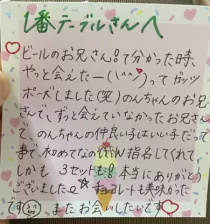 1番テーブルさんへ
ビールのお兄さん!?で分かった時、
やっと会えたー(\^^)って ガッツ
ポーズしました(笑)のんちゃんのお兄
さんで、ずっと会いていなかったお兄さん
で、のんちゃんの仲良い子はいい子だって
事で、初めてなのに 指名してくれて
しかも 3セットも!! 本当にありがとう
ございましたっ チョコレートも美味かった
です またお会いしたいです